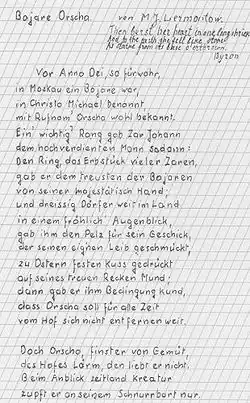 Bojare Orscha von M.J. Liermontow.
Then burst her heart in one long shriek,
And to the earth she fell like stone
Or statue from its base o'erthrown.
Byron
Vor Anno Dei, so fürwahr,
in Moskau ein Bojare war,
in Christo Michael benannt,
mit Rufnam' Orscha wohl bekannt.
Ein' wichtig' Rang gab Zar Johann
dem hochverdienten Mann sodann:
Den Ring, das Erbstück vieler Zaren,
gab er dem treusten der Bojaren
von seiner majestätisch Hand;
und dreissig Dörfer weit im Land
in einem fröhlich' Augenblick,
gab ihm den Pelz für sein Geschick,
der seinen eignen Leib geschmückt,
zu Ostern festen Kuss gedrückt
auf seines treuen Recken Mund;
dann gab er ihm Bedingung kund,
dass Orscha soll für alle Zeit
vom Hof sich nicht entfernen weit.
Doch Orscha, finster von Gemüt,
des Hofes Lärm, den liebt er nicht.
Beim Anblick seitland Kreatur
zupft er an seinem Schnurrbart nur.